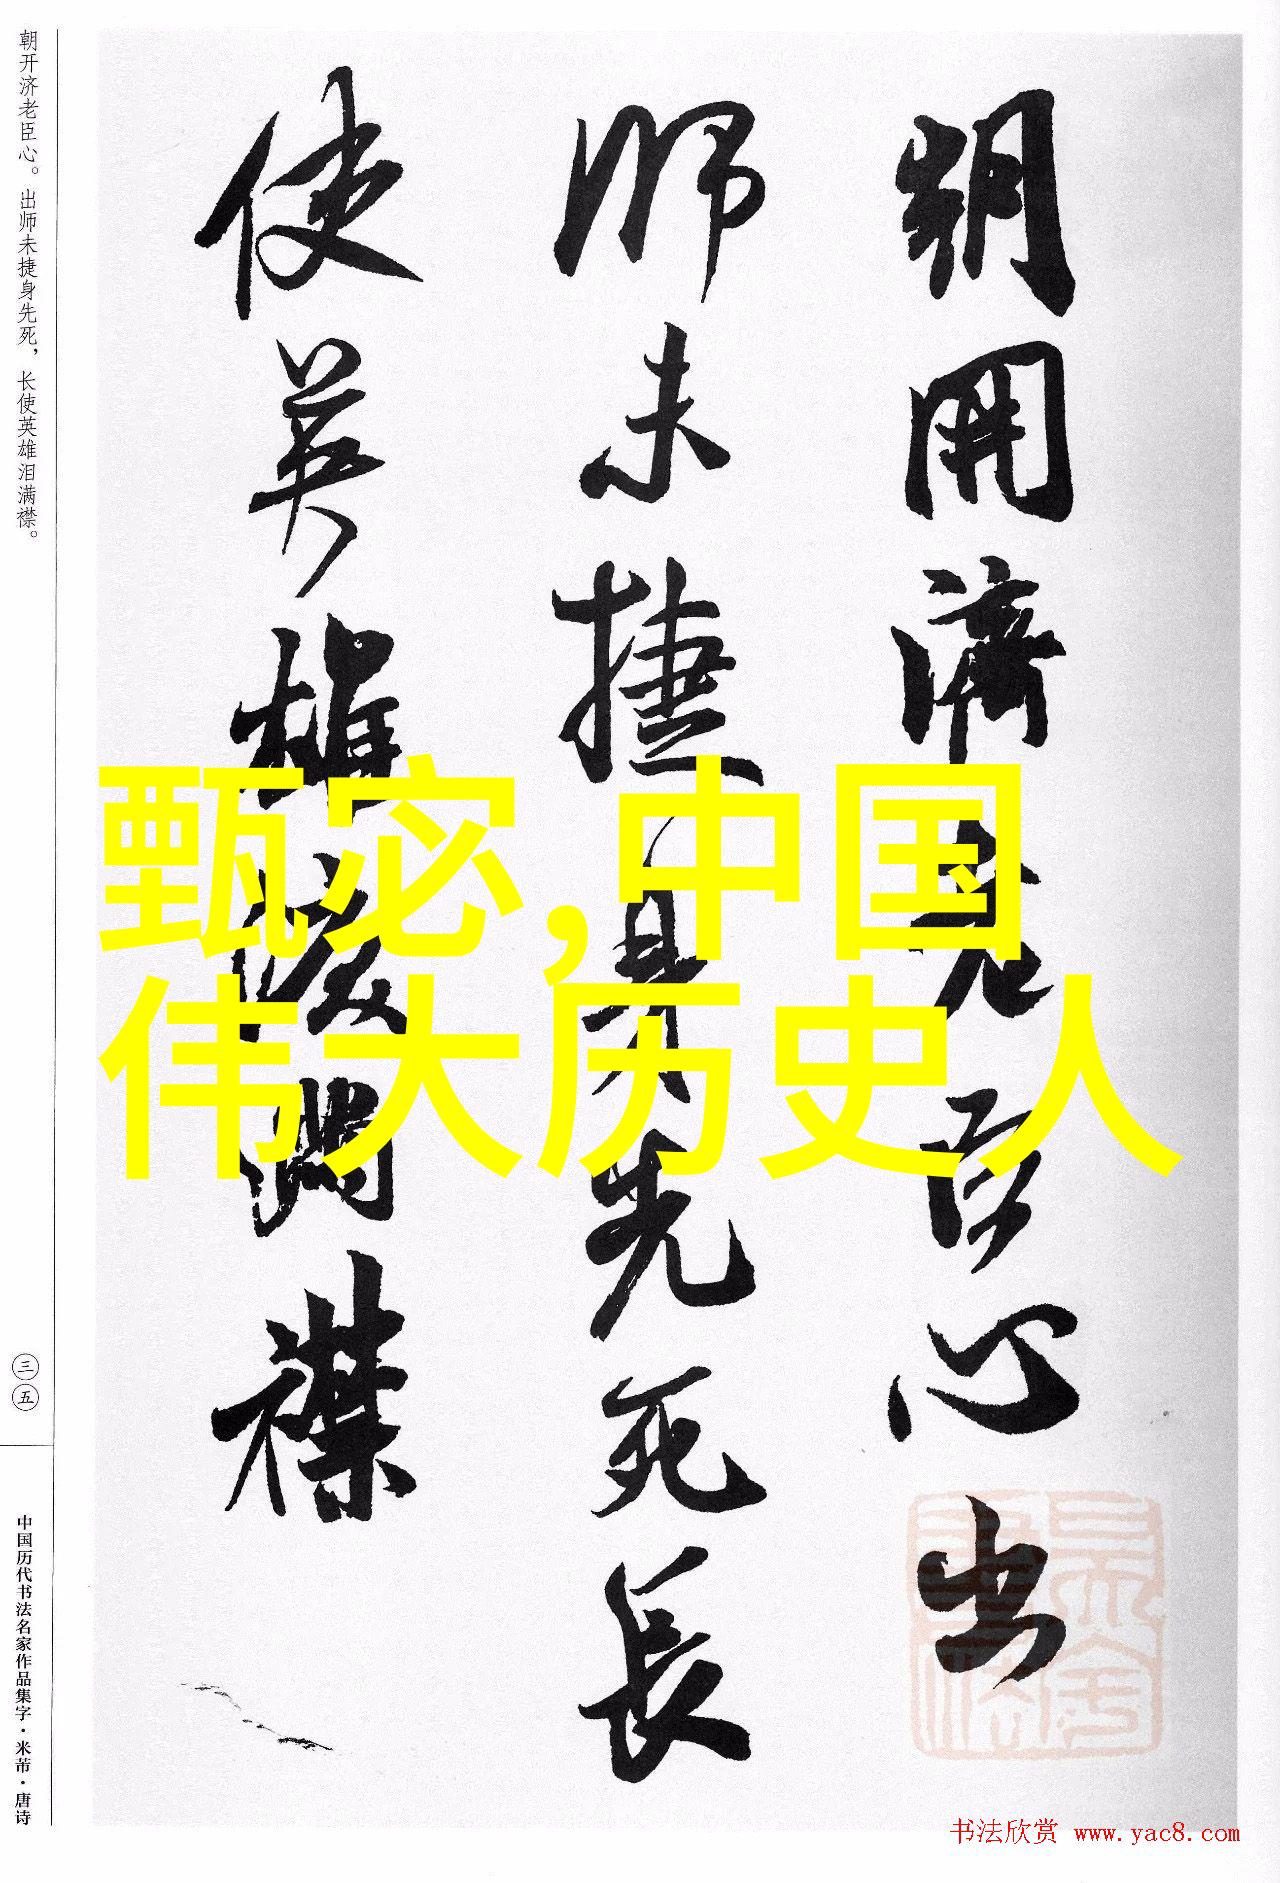 朝開濟老臣心出
師未捷身先死長
使英雄淚滿襟
甄宓,中国
伟大历史人
朝开济老臣心。出师未捷身先死，长使英雄泪满襟。
三五
中国历代书法名家作品集字·米芾·唐诗
书法欣赏 www.yac8.com